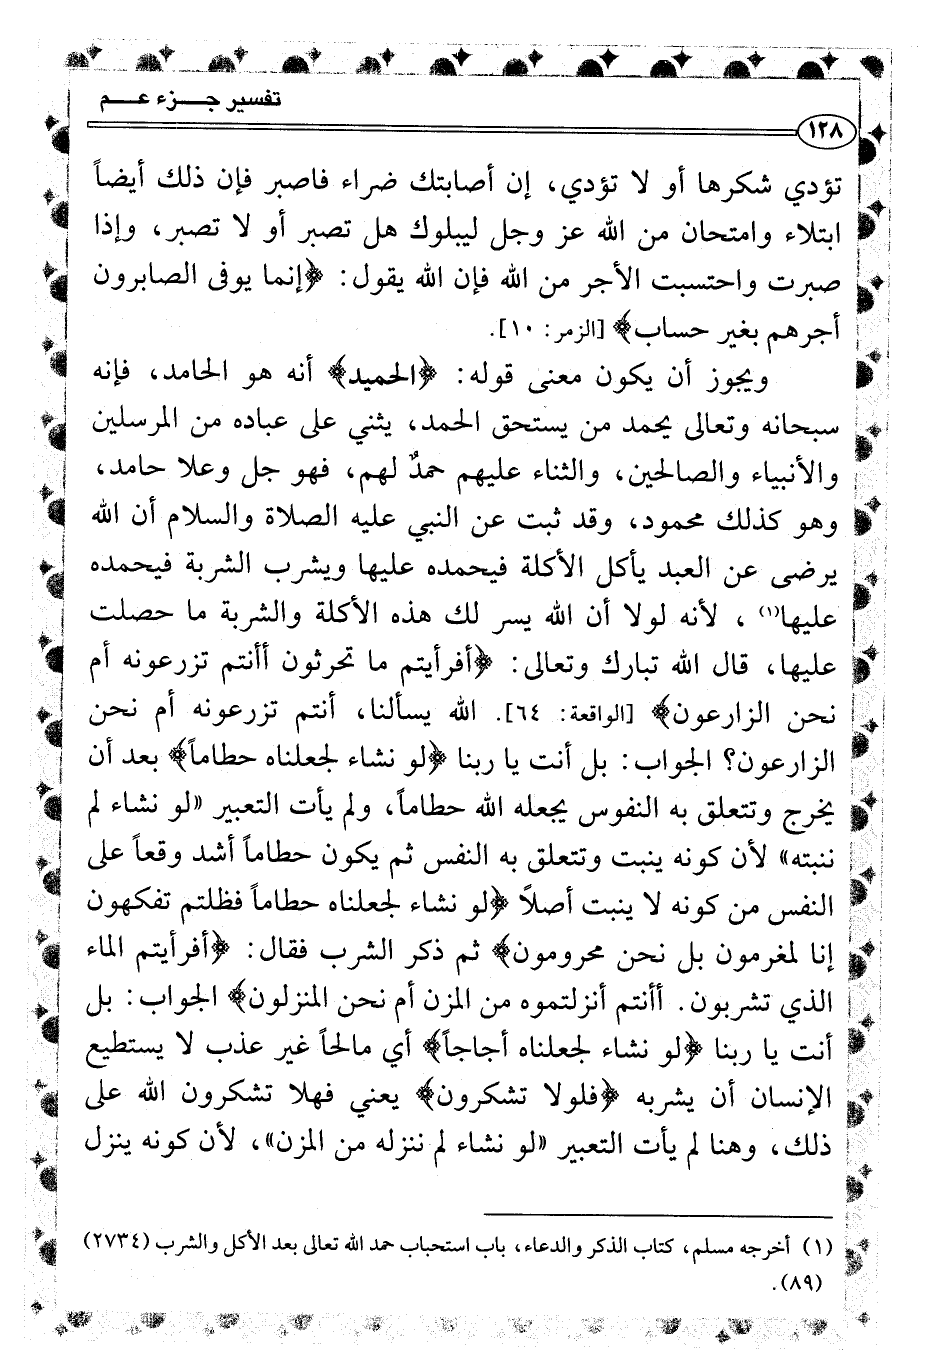 تفسير جـــزء عـــم
١٢٨
تؤدي شكرها أو لا تؤدي، إن أصابتك ضراء فاصبر فإن ذلك أيضاً
ابتلاء وامتحان من الله عز وجل ليبلوك هل تصبر أو لا تصبر، وإذا
صبرت واحتسبت الأجر من الله فإن الله يقول: ﴿إنما يوفى الصابرون
أجرهم بغير حساب﴾ [الزمر: ١٠].
ويجوز أن يكون معنى قوله: ﴿الحميد﴾ أنه هو الحامد، فإنه
سبحانه وتعالى يحمد من يستحق الحمد، يثني على عباده من المرسلين
والأنبياء والصالحين، والثناء عليهم حمدٌ لهم، فهو جل وعلا حامد،
وهو كذلك محمود، وقد ثبت عن النبي عليه الصلاة والسلام أن الله
يرضى عن العبد يأكل الأكلة فيحمده عليها ويشرب الشربة فيحمده
عليها(١)، لأنه لولا أن الله يسر لك هذه الأكلة والشربة ما حصلت
عليها، قال الله تبارك وتعالى: ﴿أفرأيتم ما تحرثون أأنتم تزرعونه أم
نحن الزارعون﴾ [الواقعة: ٦٤]. الله يسألنا، أنتم تزرعونه أم نحن
الزارعون؟ الجواب: بل أنت يا ربنا ﴿لو نشاء لجعلناه حطاماً﴾ بعد أن
يخرج وتتعلق به النفوس يجعله الله حطاماً، ولم يأت التعبير «لو نشاء لم
ننبته» لأن كونه ينبت وتتعلق به النفس ثم يكون حطاماً أشد وقعاً على
النفس من كونه لا ينبت أصلاً ﴿لو نشاء لجعلناه حطاماً فظلتم تفكهون
إنا لمغرمون بل نحن محرومون﴾ ثم ذكر الشرب فقال: ﴿أفرأيتم الماء
الذي تشربون. أأنتم أنزلتموه من المزن أم نحن المنزلون﴾ الجواب: بل
أنت يا ربنا ﴿لو نشاء لجعلناه أجاجاً﴾ أي مالحاً غير عذب لا يستطيع
الإنسان أن يشربه ﴿فلولا تشكرون﴾ يعني فهلا تشكرون الله على
ذلك، وهنا لم يأت التعبير «لو نشاء لم ننزله من المزن»، لأن كونه ينزل
(١) أخرجه مسلم، كتاب الذكر والدعاء، باب استحباب حمد الله تعالى بعد الأكل والشرب (٢٧٣٤)
(٨٩).